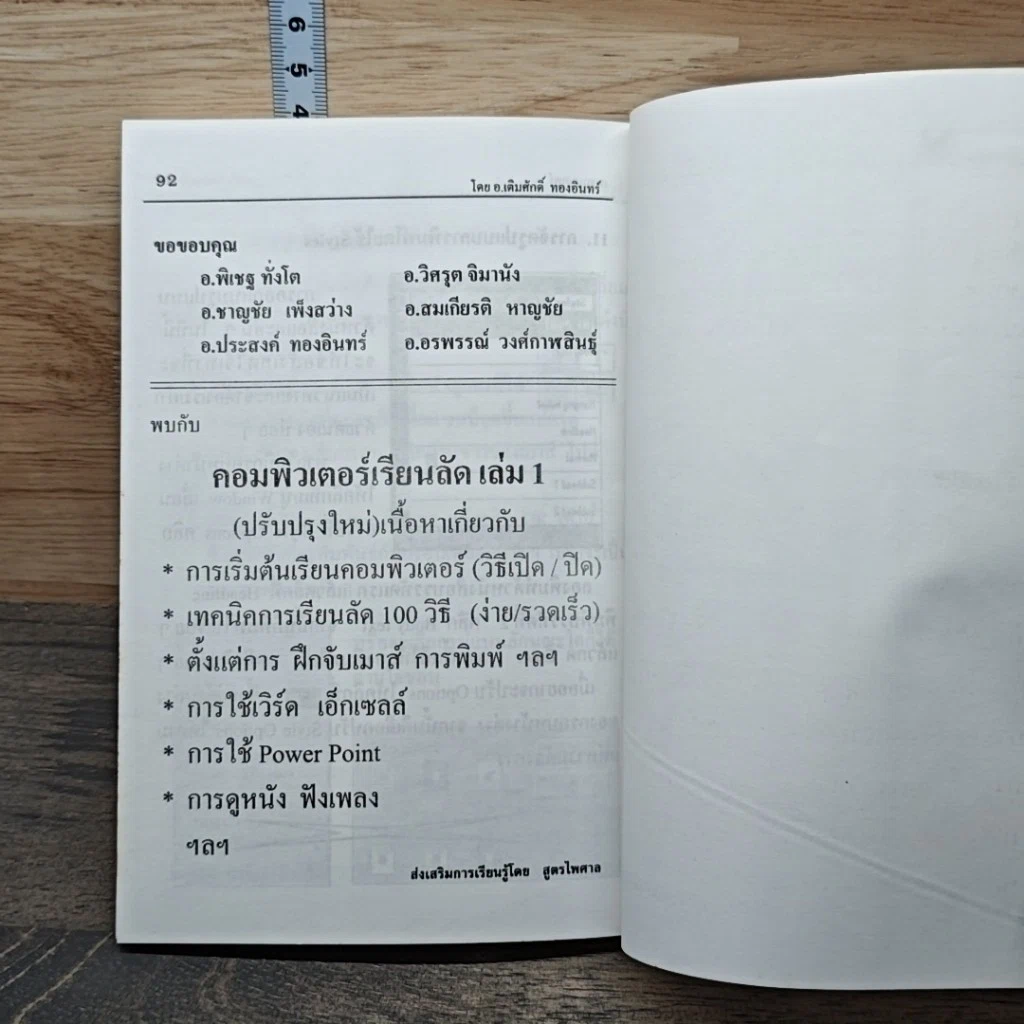 6
5
4
92
โดย อ.เติมศักดิ์ ทองอินทร์
ขอขอบคุณ
อ.พิเชฐ ทั่งโต อ.วิศรุต จิมานัง
อ.ชาญชัย เพ็งสว่าง อ.สมเกียรติ หาญชัย
อ.ประสงค์ ทองอินทร์ อ.อรพรรณ์ วงศ์กาฬสินธุ์
พบกับ
คอมพิวเตอร์เรียนลัด เล่ม 1
(ปรับปรุงใหม่)เนื้อหาเกี่ยวกับ
* การเริ่มต้นเรียนคอมพิวเตอร์ (วิธีเปิด / ปิด)
* เทคนิคการเรียนลัด 100 วิธี (ง่าย/รวดเร็ว)
* ตั้งแต่การ ฝึกจับเมาส์ การพิมพ์ ฯลฯ
* การใช้เวิร์ด เอ็กเซลล์
* การใช้ Power Point
* การดูหนัง ฟังเพลง
ฯลฯ
ส่งเสริมการเรียนรู้โดย สูตรไพศาล